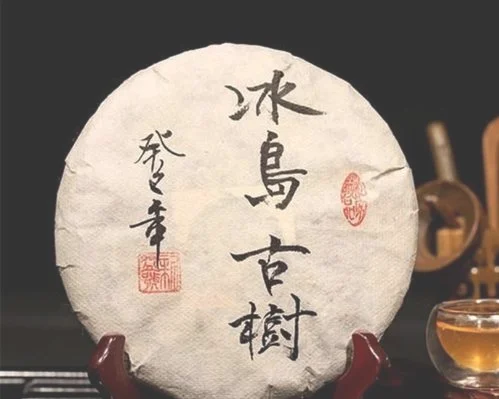 冰島古樹
癸巳年